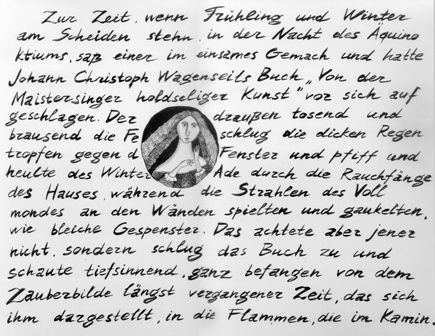 Zur Zeit, wenn Frühling und Winter
am Scheiden stehn, in der Nacht des Äquino
ktiums, saß einer im einsames Gemach und hatte
Johann Christoph Wagenseils Buch „Von der
Maistersinger holdseliger Kunst" vor sich auf
geschlagen. Der draußen tosend und
brausend die Fe schlug die dicken Regen
tropfen gegen d Fenster und pfiff und
heulte des Winter Ade durch die Rauchfänge
des Hauses, während die Strahlen des Voll
mondes an den Wänden spielten und gaukelten,
wie bleiche Gespenster. Das achtete aber jener
nicht, sondern schlug das Buch zu und
schaute tiefsinnend, ganz befangen von dem
Zauberbilde längst vergangener Zeit, das sich
ihm dargestellt, in die Flammen, die im Kamin.